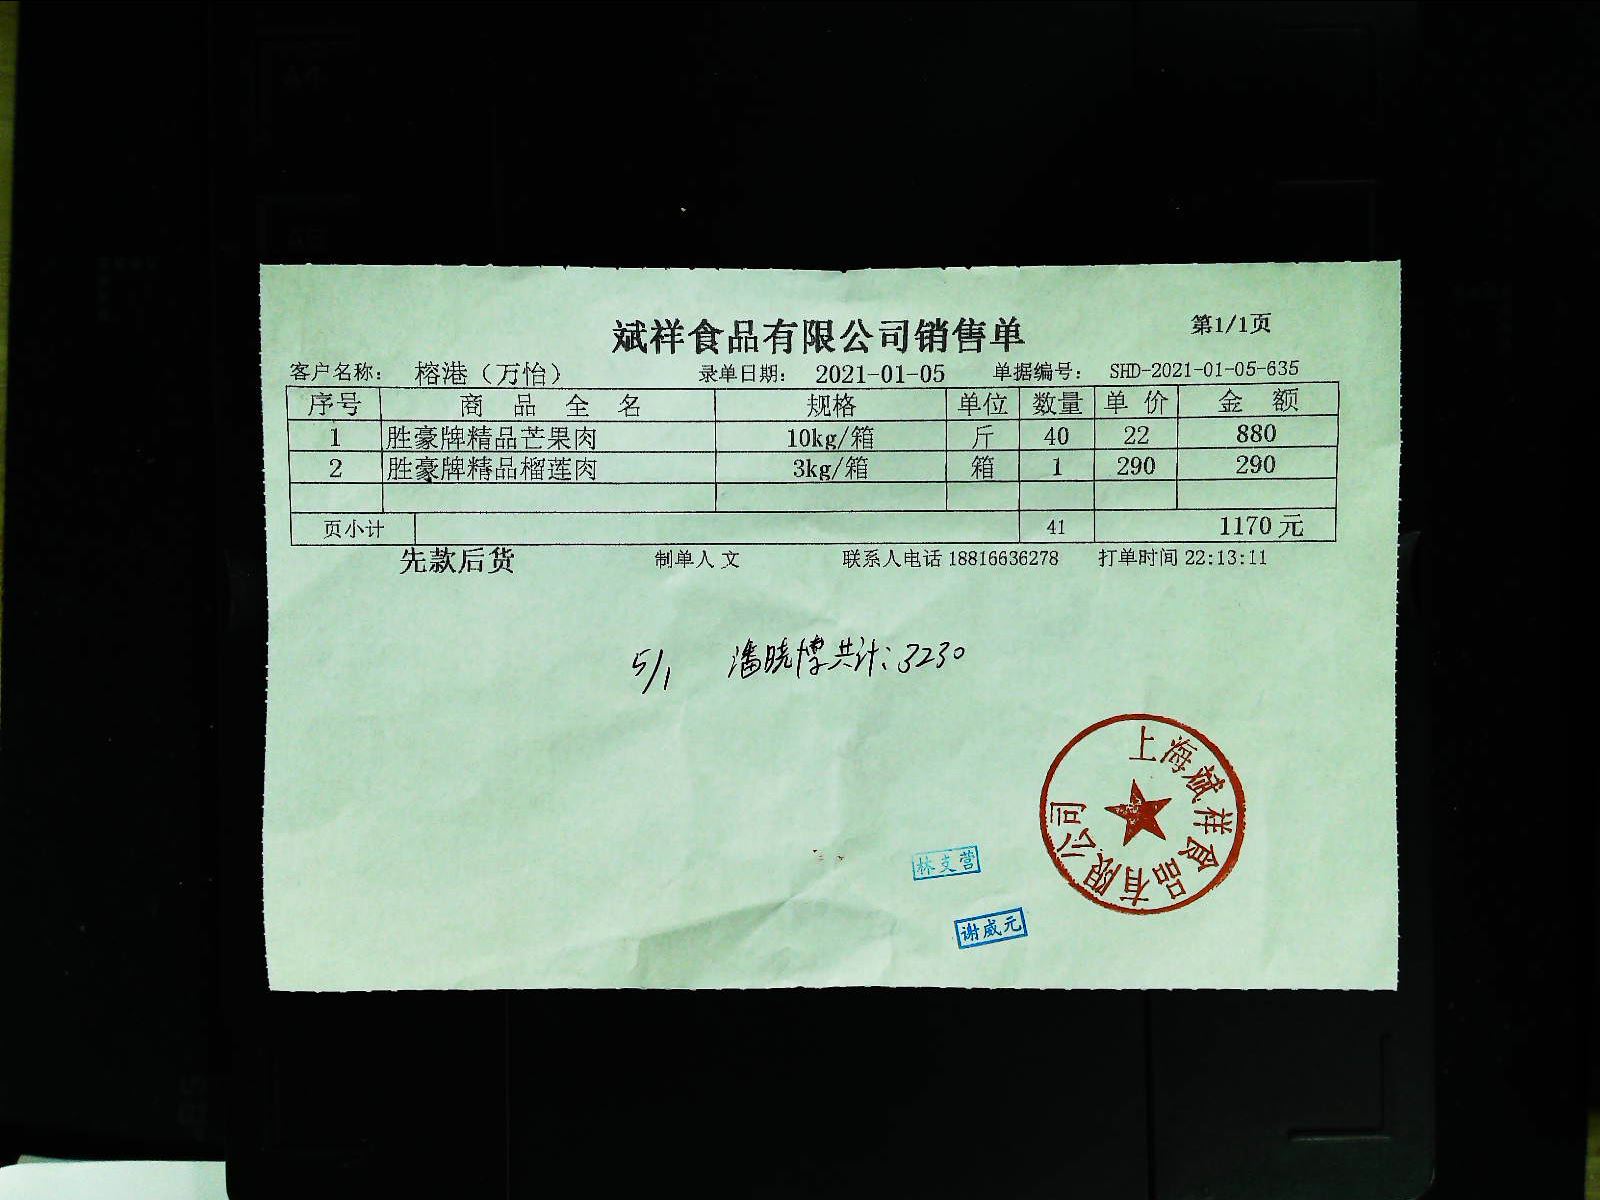 斌祥食品有限公司销售单 第1/1页
客户名称： 榕港（万怡） 录单日期： 2021-01-05 单据编号： SHD-2021-01-05-635
序号 商品全名 规格 单位 数量 单价 金额
1 胜豪牌精品芒果肉 10kg/箱 斤 40 22 880
2 胜豪牌精品榴莲肉 3kg/箱 箱 1 290 290
页小计 41 1170 元
先款后货 制单人 文 联系人电话 18816636278 打单时间 22:13:11
5/1 潘晓博共计：3230
上海斌祥食品有限公司
林支营
谢威元